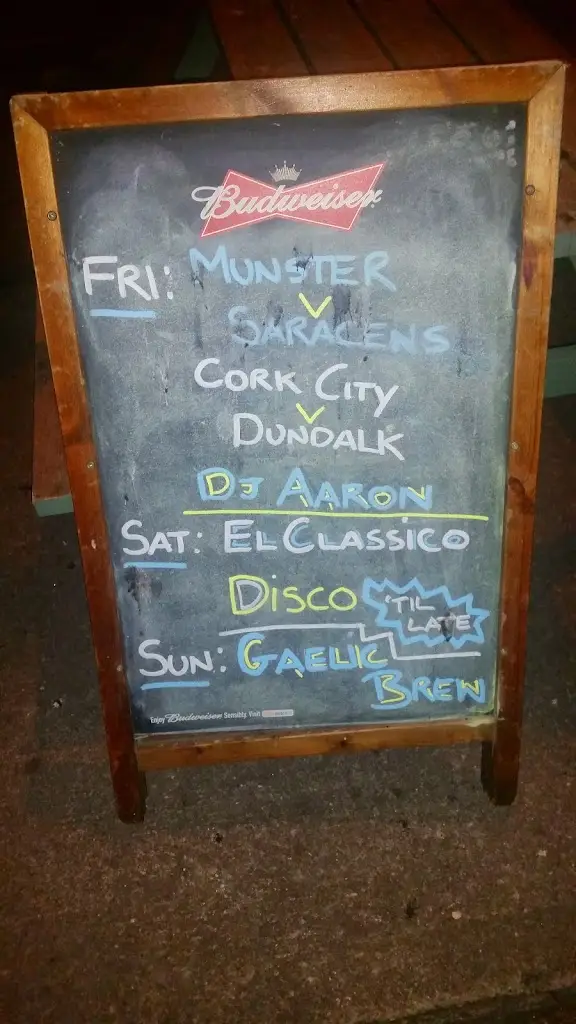 Budweiser
FRI: MUNSTER
V
SARACENS
CORK CITY
V
DUNDALK
DJ AARON
SAT: EL CLASSICO
DISCO 'TIL LATE
SUN: GAELIC
BREW
Enjoy Budweiser Sensibly. Visit